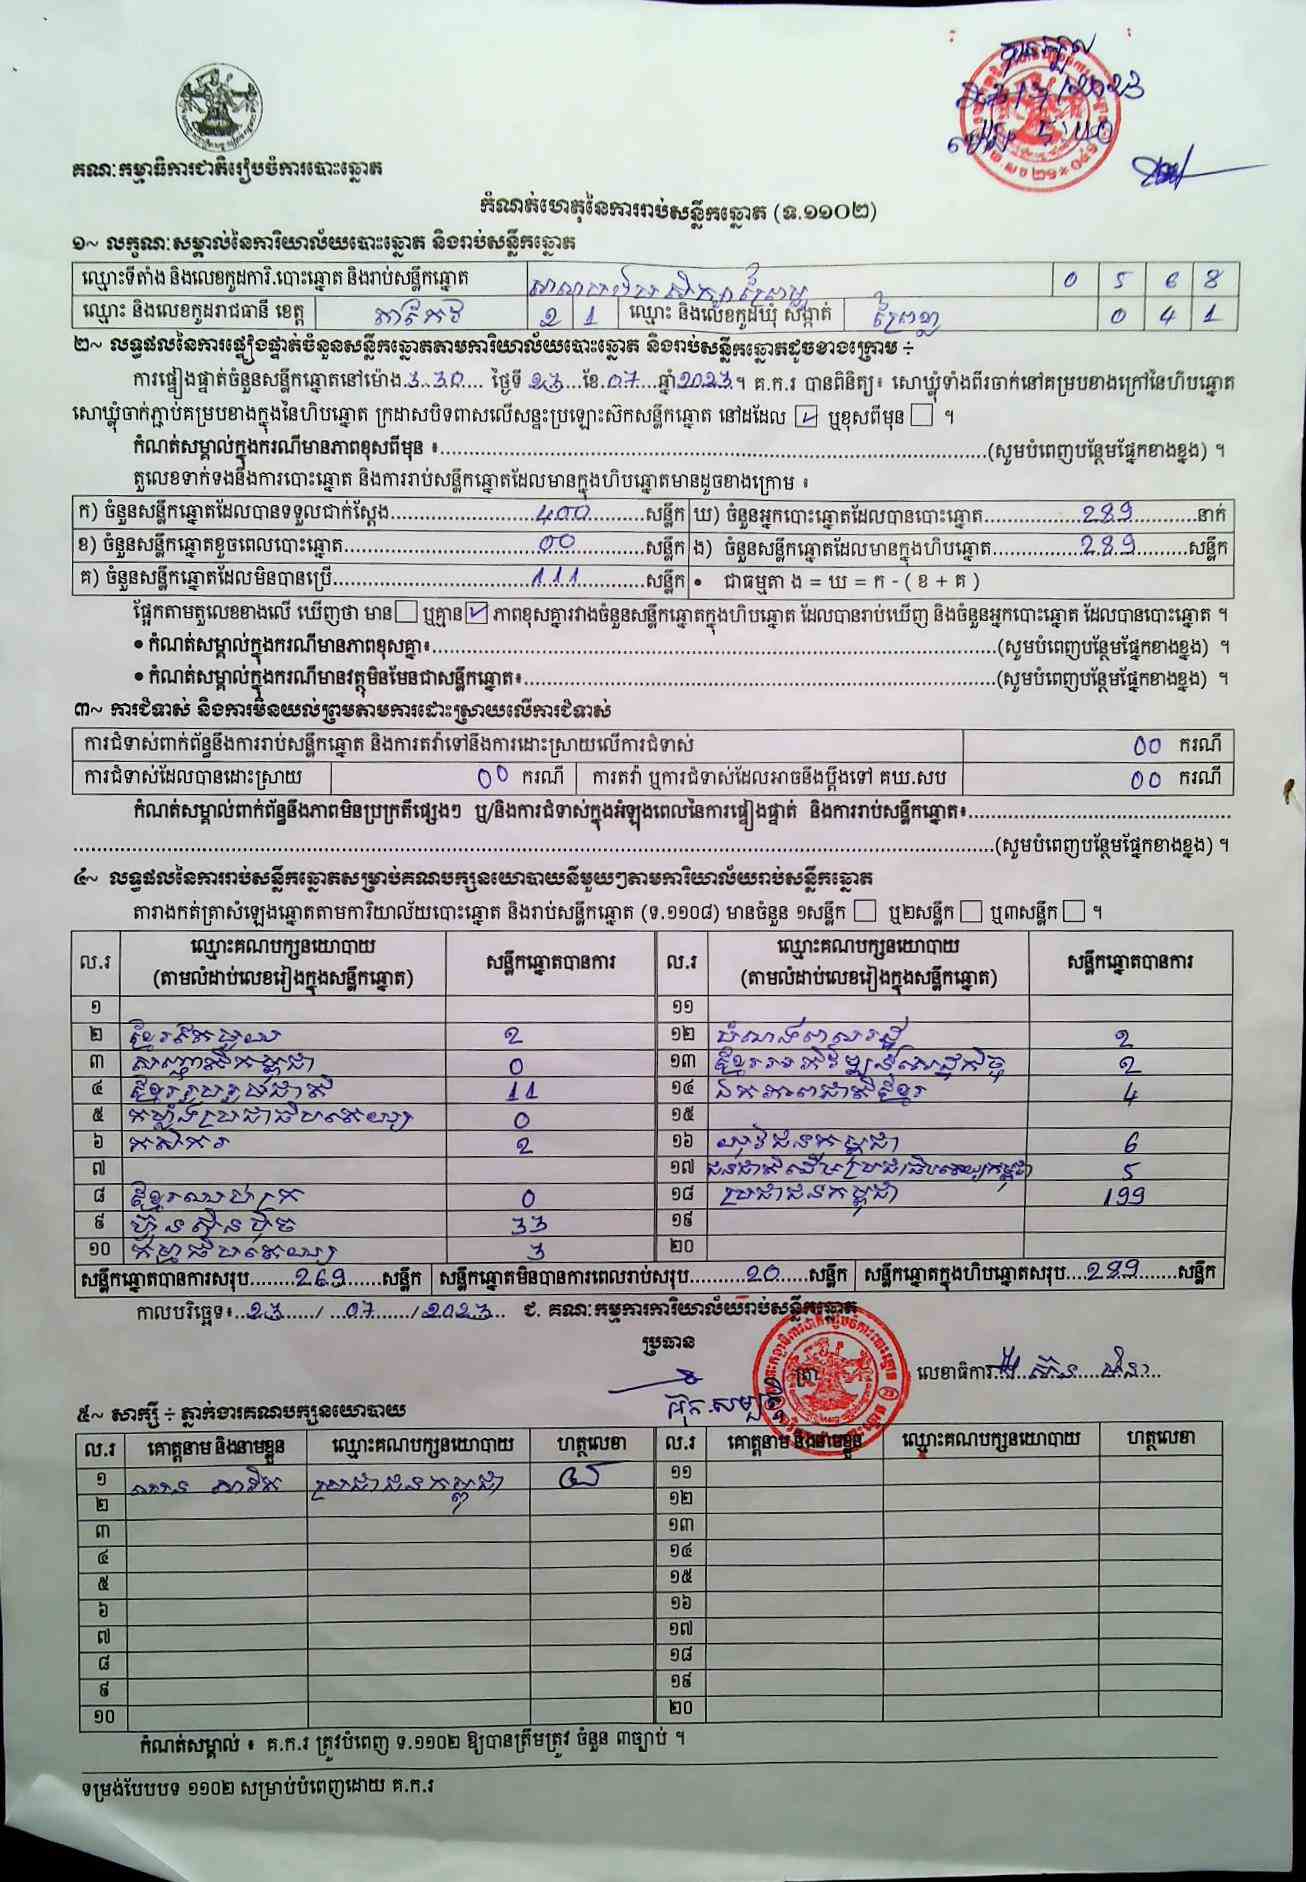 គណៈកម្មាធិការជាតិរៀបចំការបោះឆ្នោត
បានឃើញ
កំណត់ហេតុនៃការរាប់សន្លឹកឆ្នោត (ទ.១១០២)
១~ លក្ខណៈសម្គាល់នៃការិយាល័យបោះឆ្នោត និងរាប់សន្លឹកឆ្នោត
ឈ្មោះទីតាំង និងលេខកូដការិ.បោះឆ្នោត និងរាប់សន្លឹកឆ្នោត 0 5 6 8
ឈ្មោះ និងលេខកូដរាជធានី ខេត្ត តាកែវ 2 1 ឈ្មោះ និងលេខកូដឃុំ សង្កាត់ ព្រៃខ្លា 0 4 1
២~ លទ្ធផលនៃការផ្ទៀងផ្ទាត់ចំនួនសន្លឹកឆ្នោតតាមការិយាល័យបោះឆ្នោត និងរាប់សន្លឹកឆ្នោតដូចខាងក្រោម ÷
ការផ្ទៀងផ្ទាត់ចំនួនសន្លឹកឆ្នោតនៅម៉ោង.3.30.... ថ្ងៃទី 23...ខែ.07....ឆ្នាំ2023.។ គ.ក.រ បានពិនិត្យ៖ សោឃ្លុំទាំងពីរចាក់នៅគម្របខាងក្រៅនៃហិបឆ្នោត
សោឃ្លុំចាក់ភ្ជាប់គម្របខាងក្នុងនៃហិបឆ្នោត ក្រដាសបិទពាសលើសន្ទះប្រឡោះស៊កសន្លឹកឆ្នោត នៅដដែល ☑ ឬខុសពីមុន ☐ ។
កំណត់សម្គាល់ក្នុងករណីមានភាពខុសពីមុន ៖........(សូមបំពេញបន្ថែមផ្នែកខាងខ្នង) ។
តួលេខទាក់ទងនឹងការបោះឆ្នោត និងការរាប់សន្លឹកឆ្នោតដែលមានក្នុងហិបឆ្នោតមានដូចខាងក្រោម ៖
ក) ចំនួនសន្លឹកឆ្នោតដែលបានទទួលជាក់ស្តែង........400........សន្លឹក ឃ) ចំនួនអ្នកបោះឆ្នោតដែលបានបោះឆ្នោត........289........នាក់
ខ) ចំនួនសន្លឹកឆ្នោតខូចពេលបោះឆ្នោត........00........សន្លឹក ង) ចំនួនសន្លឹកឆ្នោតដែលមានក្នុងហិបឆ្នោត........289........សន្លឹក
គ) ចំនួនសន្លឹកឆ្នោតដែលមិនបានប្រើ........111........សន្លឹក • ជាធម្មតា ង = ឃ = ក - ( ខ + គ )
ផ្អែកតាមតួលេខខាងលើ ឃើញថា មាន ☐ ឬគ្មាន ☑ ភាពខុសគ្នារវាងចំនួនសន្លឹកឆ្នោតក្នុងហិបឆ្នោត ដែលបានរាប់ឃើញ និងចំនួនអ្នកបោះឆ្នោត ដែលបានបោះឆ្នោត ។
• កំណត់សម្គាល់ក្នុងករណីមានភាពខុសគ្នា៖........(សូមបំពេញបន្ថែមផ្នែកខាងខ្នង) ។
• កំណត់សម្គាល់ក្នុងករណីមានវត្ថុមិនមែនជាសន្លឹកឆ្នោត៖........(សូមបំពេញបន្ថែមផ្នែកខាងខ្នង) ។
៣~ ការជំទាស់ និងការមិនយល់ព្រមតាមការដោះស្រាយលើការជំទាស់
ការជំទាស់ពាក់ព័ន្ធនឹងការរាប់សន្លឹកឆ្នោត និងការតវ៉ាទៅនឹងការដោះស្រាយលើការជំទាស់ 00 ករណី
ការជំទាស់ដែលបានដោះស្រាយ 00 ករណី ការតវ៉ា ឬការជំទាស់ដែលអាចនឹងប្តឹងទៅ គឃ.សប 00 ករណី
កំណត់សម្គាល់ពាក់ព័ន្ធនឹងភាពមិនប្រក្រតីផ្សេងៗ ឬ/និងការជំទាស់ក្នុងអំឡុងពេលនៃការផ្ទៀងផ្ទាត់ និងការរាប់សន្លឹកឆ្នោត៖........
........(សូមបំពេញបន្ថែមផ្នែកខាងខ្នង) ។
៤~ លទ្ធផលនៃការរាប់សន្លឹកឆ្នោតសម្រាប់គណបក្សនយោបាយនីមួយៗតាមការិយាល័យរាប់សន្លឹកឆ្នោត
តារាងកត់ត្រាសំឡេងឆ្នោតតាមការិយាល័យបោះឆ្នោត និងរាប់សន្លឹកឆ្នោត (ទ.១១០៨) មានចំនួន ១សន្លឹក ☐ ឬ២សន្លឹក ☐ ឬ៣សន្លឹក ☐ ។
ល.រ ឈ្មោះគណបក្សនយោបាយ (តាមលំដាប់លេខរៀងក្នុងសន្លឹកឆ្នោត) សន្លឹកឆ្នោតបានការ ល.រ ឈ្មោះគណបក្សនយោបាយ (តាមលំដាប់លេខរៀងក្នុងសន្លឹកឆ្នោត) សន្លឹកឆ្នោតបានការ
១ ១១
២ ខ្មែរតែមួយ 2 ១២ 2
៣ សញ្ជាតិកម្ពុជា 0 ១៣ ខ្មែរអភិវឌ្ឍន៍សេដ្ឋកិច្ច 2
៤ ខ្មែររួបរួមជាតិ 11 ១៤ ឯកភាពជាតិខ្មែរ 4
៥ កម្លាំងប្រជាធិបតេយ្យ 0 ១៥
៦ កសិករ 2 ១៦ យុវជនកម្ពុជា 6
៧ ១៧ ជនជាតិដើមប្រជាធិបតេយ្យកម្ពុជា 5
៨ ខ្មែរឈប់ក្រ 0 ១៨ ប្រជាជនកម្ពុជា 199
៩ ហ៊្វុនស៊ិនប៉ិច 33 ១៩
១០ ធម្មាធិបតេយ្យ 3 ២០
សន្លឹកឆ្នោតបានការសរុប........269........សន្លឹក សន្លឹកឆ្នោតមិនបានការពេលរាប់សរុប........20.....សន្លឹក សន្លឹកឆ្នោតក្នុងហិបឆ្នោតសរុប....289........សន្លឹក
កាលបរិច្ឆេទ៖..23....../..07......../.2023.... ជ. គណៈកម្មការការិយាល័យរាប់សន្លឹកឆ្នោត
ប្រធាន
ត្រា លេខាធិការ
៥~ សាក្សី ÷ ភ្នាក់ងារគណបក្សនយោបាយ
ល.រ គោត្តនាម និងនាមខ្លួន ឈ្មោះគណបក្សនយោបាយ ហត្ថលេខា ល.រ គោត្តនាម និងនាមខ្លួន ឈ្មោះគណបក្សនយោបាយ ហត្ថលេខា
១ ប្រជាជនកម្ពុជា ១១
២ ១២
៣ ១៣
៤ ១៤
៥ ១៥
៦ ១៦
៧ ១៧
៨ ១៨
៩ ១៩
១០ ២០
កំណត់សម្គាល់ ៖ គ.ក.រ ត្រូវបំពេញ ទ.១១០២ ឱ្យបានត្រឹមត្រូវ ចំនួន ៣ច្បាប់ ។
ទម្រង់បែបបទ ១១០២ សម្រាប់បំពេញដោយ គ.ក.រ